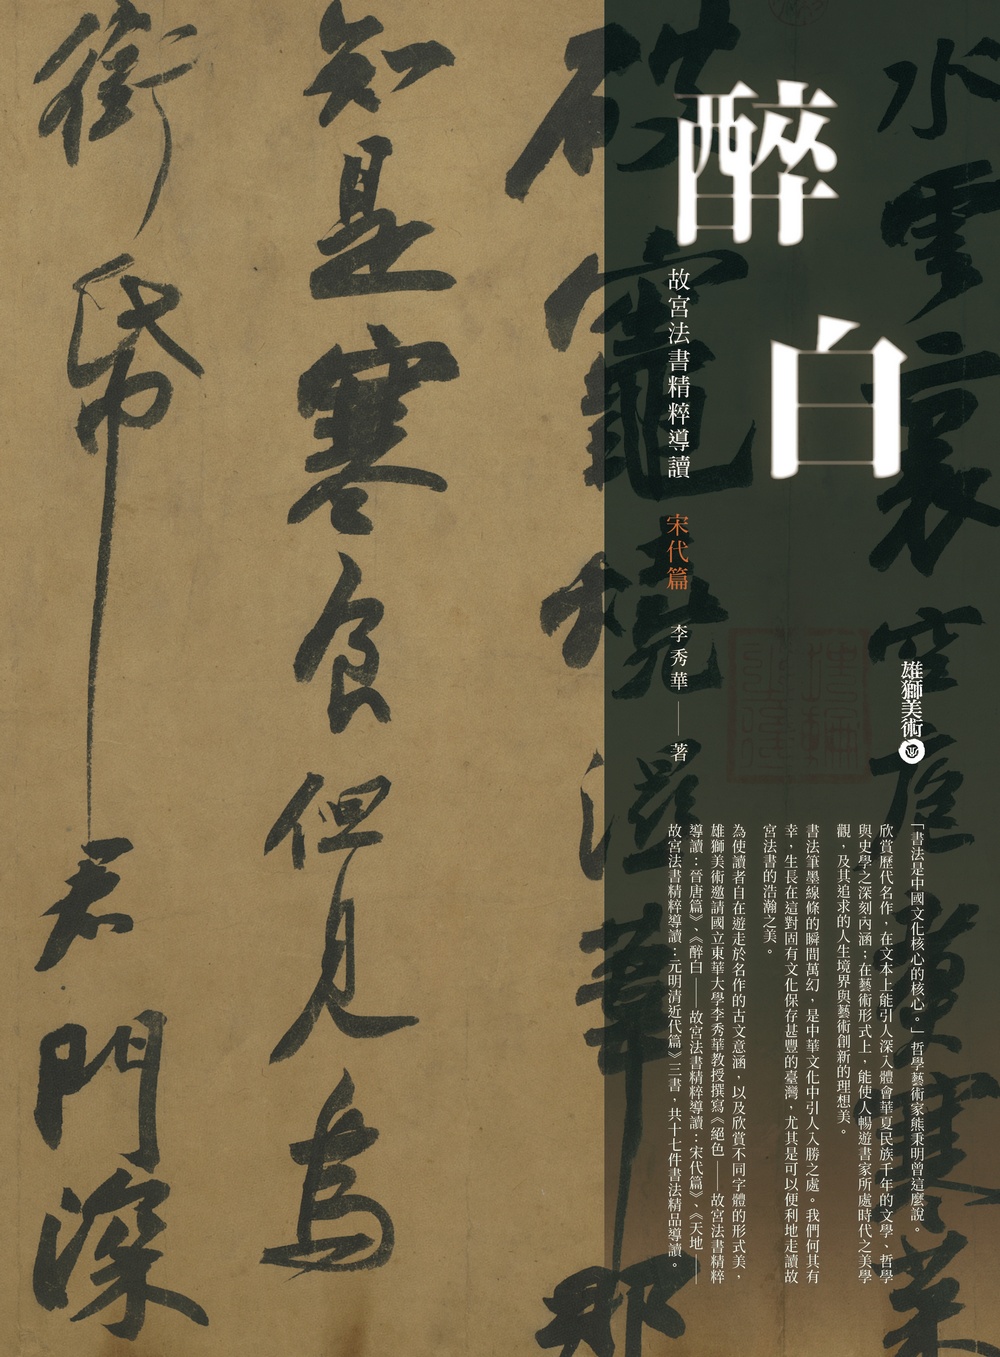 醉白
故宮法書精粹導讀 宋代篇
李秀華——著
雄獅美術
「書法是中國文化核心的核心。」哲學藝術家熊秉明曾這麼說。
欣賞歷代名作，在文本上能引人深入體會華夏民族千年的文學、哲學
與史學之深刻內涵；在藝術形式上，能使人暢遊書家所處時代之美學
觀，及其追求的人生境界與藝術創新的理想美。
書法筆墨線條的瞬間萬幻，是中華文化中引人入勝之處。我們何其有
幸，生長在這對固有文化保存甚豐的臺灣，尤其是可以便利地走讀故
宮法書的浩瀚之美。
為使讀者自在遊走於名作的古文意涵，以及欣賞不同字體的形式美，
雄獅美術邀請國立東華大學李秀華教授撰寫《絕色——故宮法書精粹
導讀：晉唐篇》、《醉白——故宮法書精粹導讀：宋代篇》、《天地——
故宮法書精粹導讀：元明清近代篇》三書，共十七件書法精品導讀。
水雲裏空庖煮寒菜
破竈燒濕葦那
知是寒食但見烏
銜帋君門深